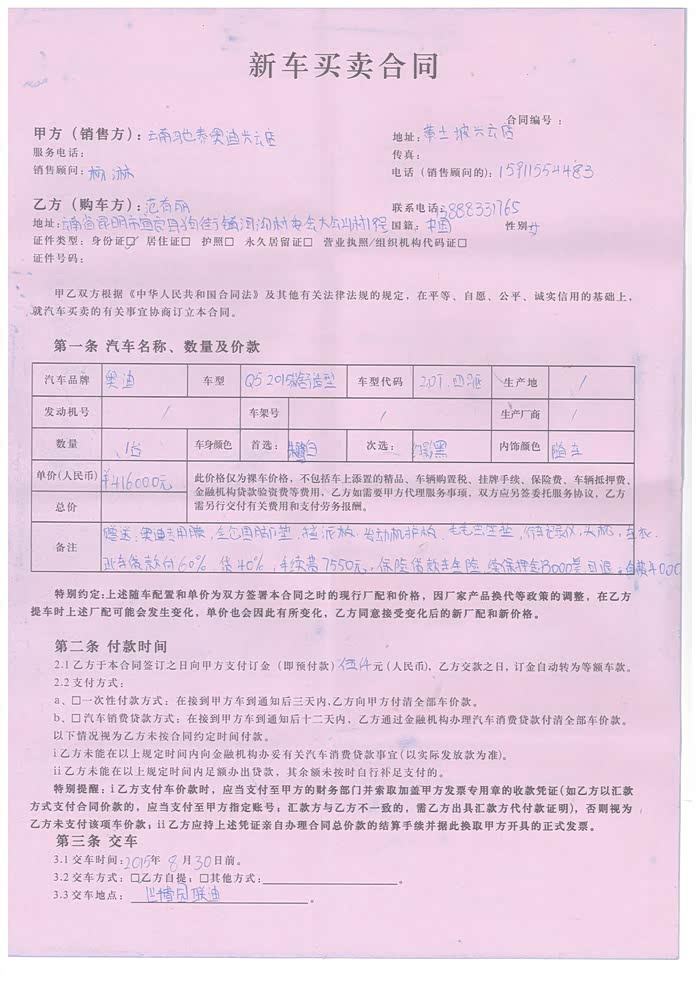 新车买卖合同
合同编号：
甲方（销售方）：云南驰泰奥迪兴云店
地址：黄土坡兴云店
服务电话：
传真：
销售顾问：杨淋
电话（销售顾问的）：15911554483
乙方（购车方）：范有丽
联系电话：13888331765
地址：云南省昆明市宜良县狗街镇
国籍：中国 性别 女
证件类型：身份证☑ 居住证□ 护照□ 永久居留证□ 营业执照/组织机构代码证□
证件号码：
甲乙双方根据《中华人民共和国合同法》及其他有关法律法规的规定，在平等、自愿、公平、诚实信用的基础上，
就汽车买卖的有关事宜协商订立本合同。
第一条 汽车名称、数量及价款
汽车品牌 奥迪 车型 Q5 2015款舒适型 车型代码 2.0T.四驱 生产地 /
发动机号 / 车架号 / 生产厂商 /
数量 1台 车身颜色 首选： 白 次选： 黑 内饰颜色
单价(人民币) ¥416000元 此价格仅为裸车价格，不包括车上添置的精品、车辆购置税、挂牌手续、保险费、车辆抵押费、
金融机构贷款验资费等费用，乙方如需要甲方代理服务事项，双方应另签委托服务协议，乙方
总价 需另行交付有关费用和支付劳务报酬。
备注 赠送：奥迪专用膜，全包围脚垫，挡泥板，发动机护板，行车记录仪，
此车贷款付60%，贷40%，手续费7550元，保险贷款
特别约定：上述随车配置和单价为双方签署本合同之时的现行厂配和价格，因厂家产品换代等政策的调整，在乙方
提车时上述厂配可能会发生变化，单价也会因此有所变化，乙方同意接受变化后的新厂配和新价格。
第二条 付款时间
2.1乙方于本合同签订之日向甲方支付订金（即预付款）伍仟元（人民币），乙方交款之日，订金自动转为等额车款。
2.2支付方式：
a、□一次性付款方式：在接到甲方车到通知后三天内，乙方向甲方付清全部车价款。
b、□汽车消费贷款方式：在接到甲方车到通知后十二天内，乙方通过金融机构办理汽车消费贷款付清全部车价款。
以下情况视为乙方未按合同约定时间付款。
i乙方未能在以上规定时间内向金融机构办妥有关汽车消费贷款事宜（以实际发放款为准）。
ii乙方未能在以上规定时间内足额办出贷款，其余额未按时自行补足支付的。
特别提醒：i乙方支付车价款时，应当支付至甲方的财务部门并索取加盖甲方发票专用章的收款凭证（如乙方以汇款
方式支付合同价款的，应当支付至甲方指定账号；汇款方与乙方不一致的，需乙方出具汇款方代付款证明），否则视为
乙方未支付该项车价款；ii乙方应持上述凭证亲自办理合同总价款的结算手续并据此换取甲方开具的正式发票。
第三条 交车
3.1交车时间：2015年 8月30日前。
3.2交车方式：□乙方自提；□其他方式： 。
3.3交车地点： 。